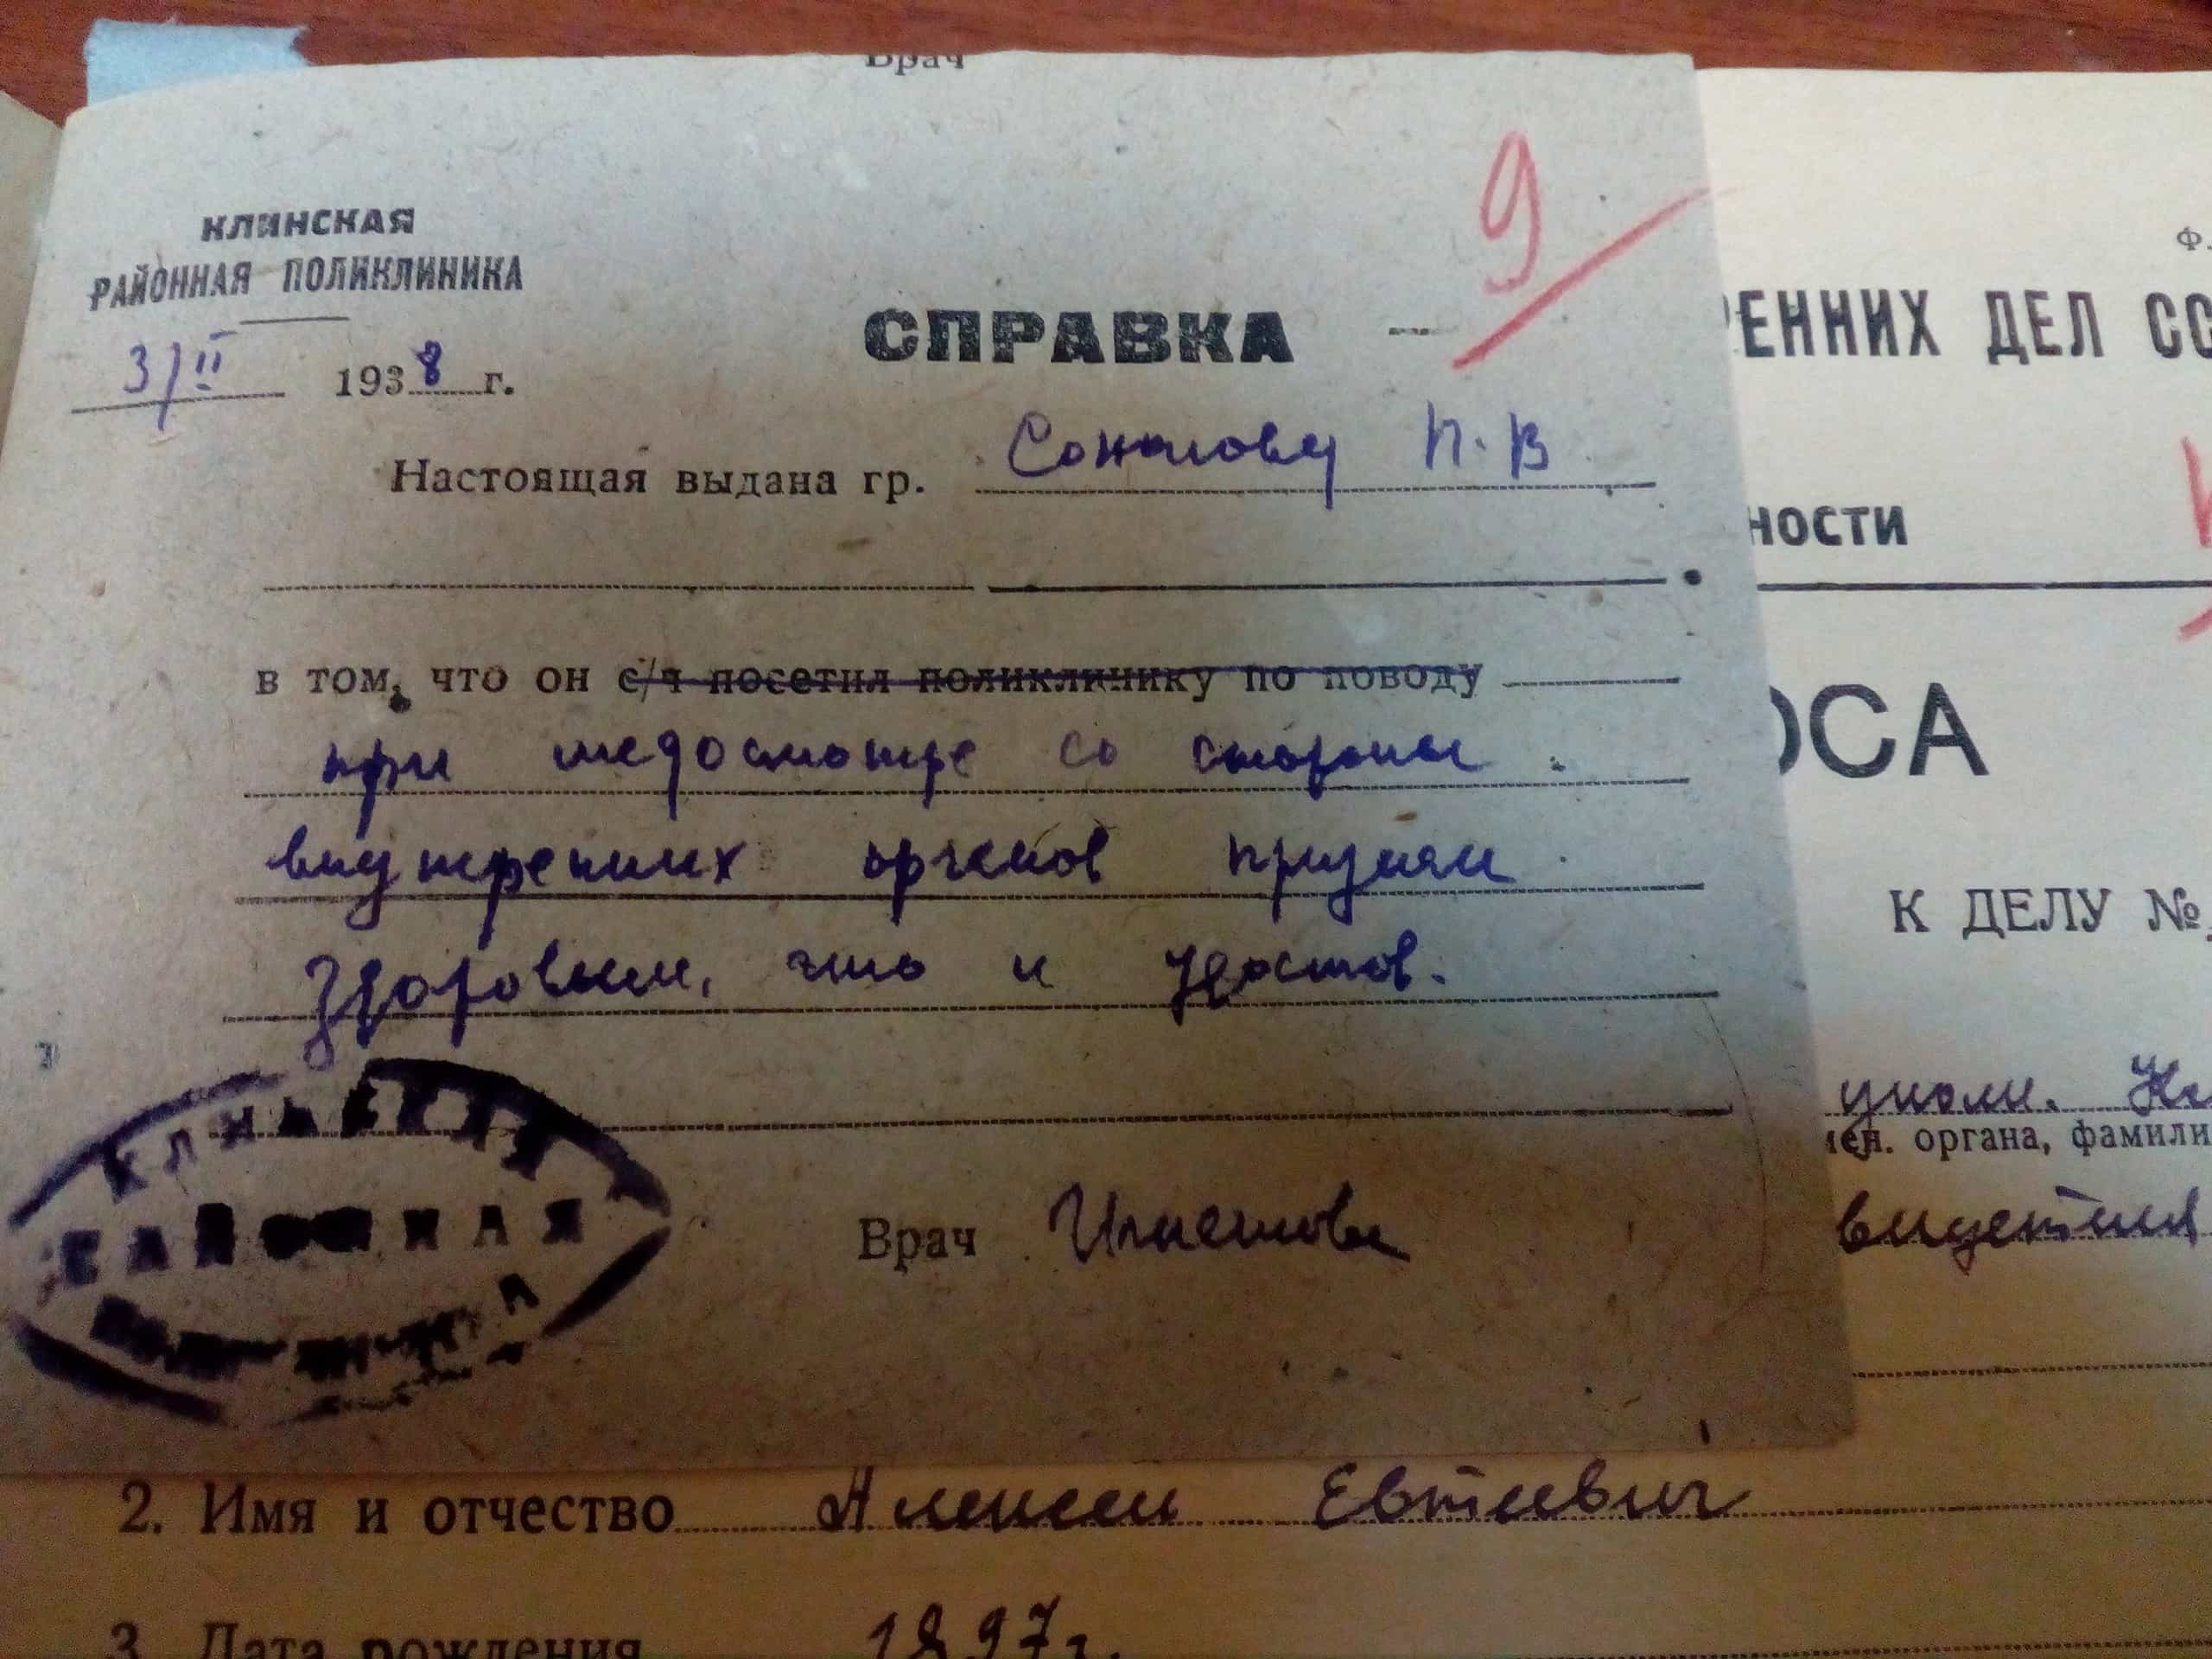 Врач
КЛИНСКАЯ
РАЙОННАЯ ПОЛИКЛИНИКА
3/II 1938 г.
СПРАВКА
9
Настоящая выдана гр. Соколову П. В
в том, что он с/ч посетил поликлинику по поводу
при медосмотре со стороны
внутренних органов признан
здоровым, что и удостов.
КЛИНСКАЯ
РАЙОННАЯ
Врач Игнатова
Ф.
РЕННИХ ДЕЛ СС
НОСТИ
ОСА
К ДЕЛУ №
уполн.
мен. органа, фамили
2. Имя и отчество Алексей Евтеевич
3. Дата рождения 1897 г.